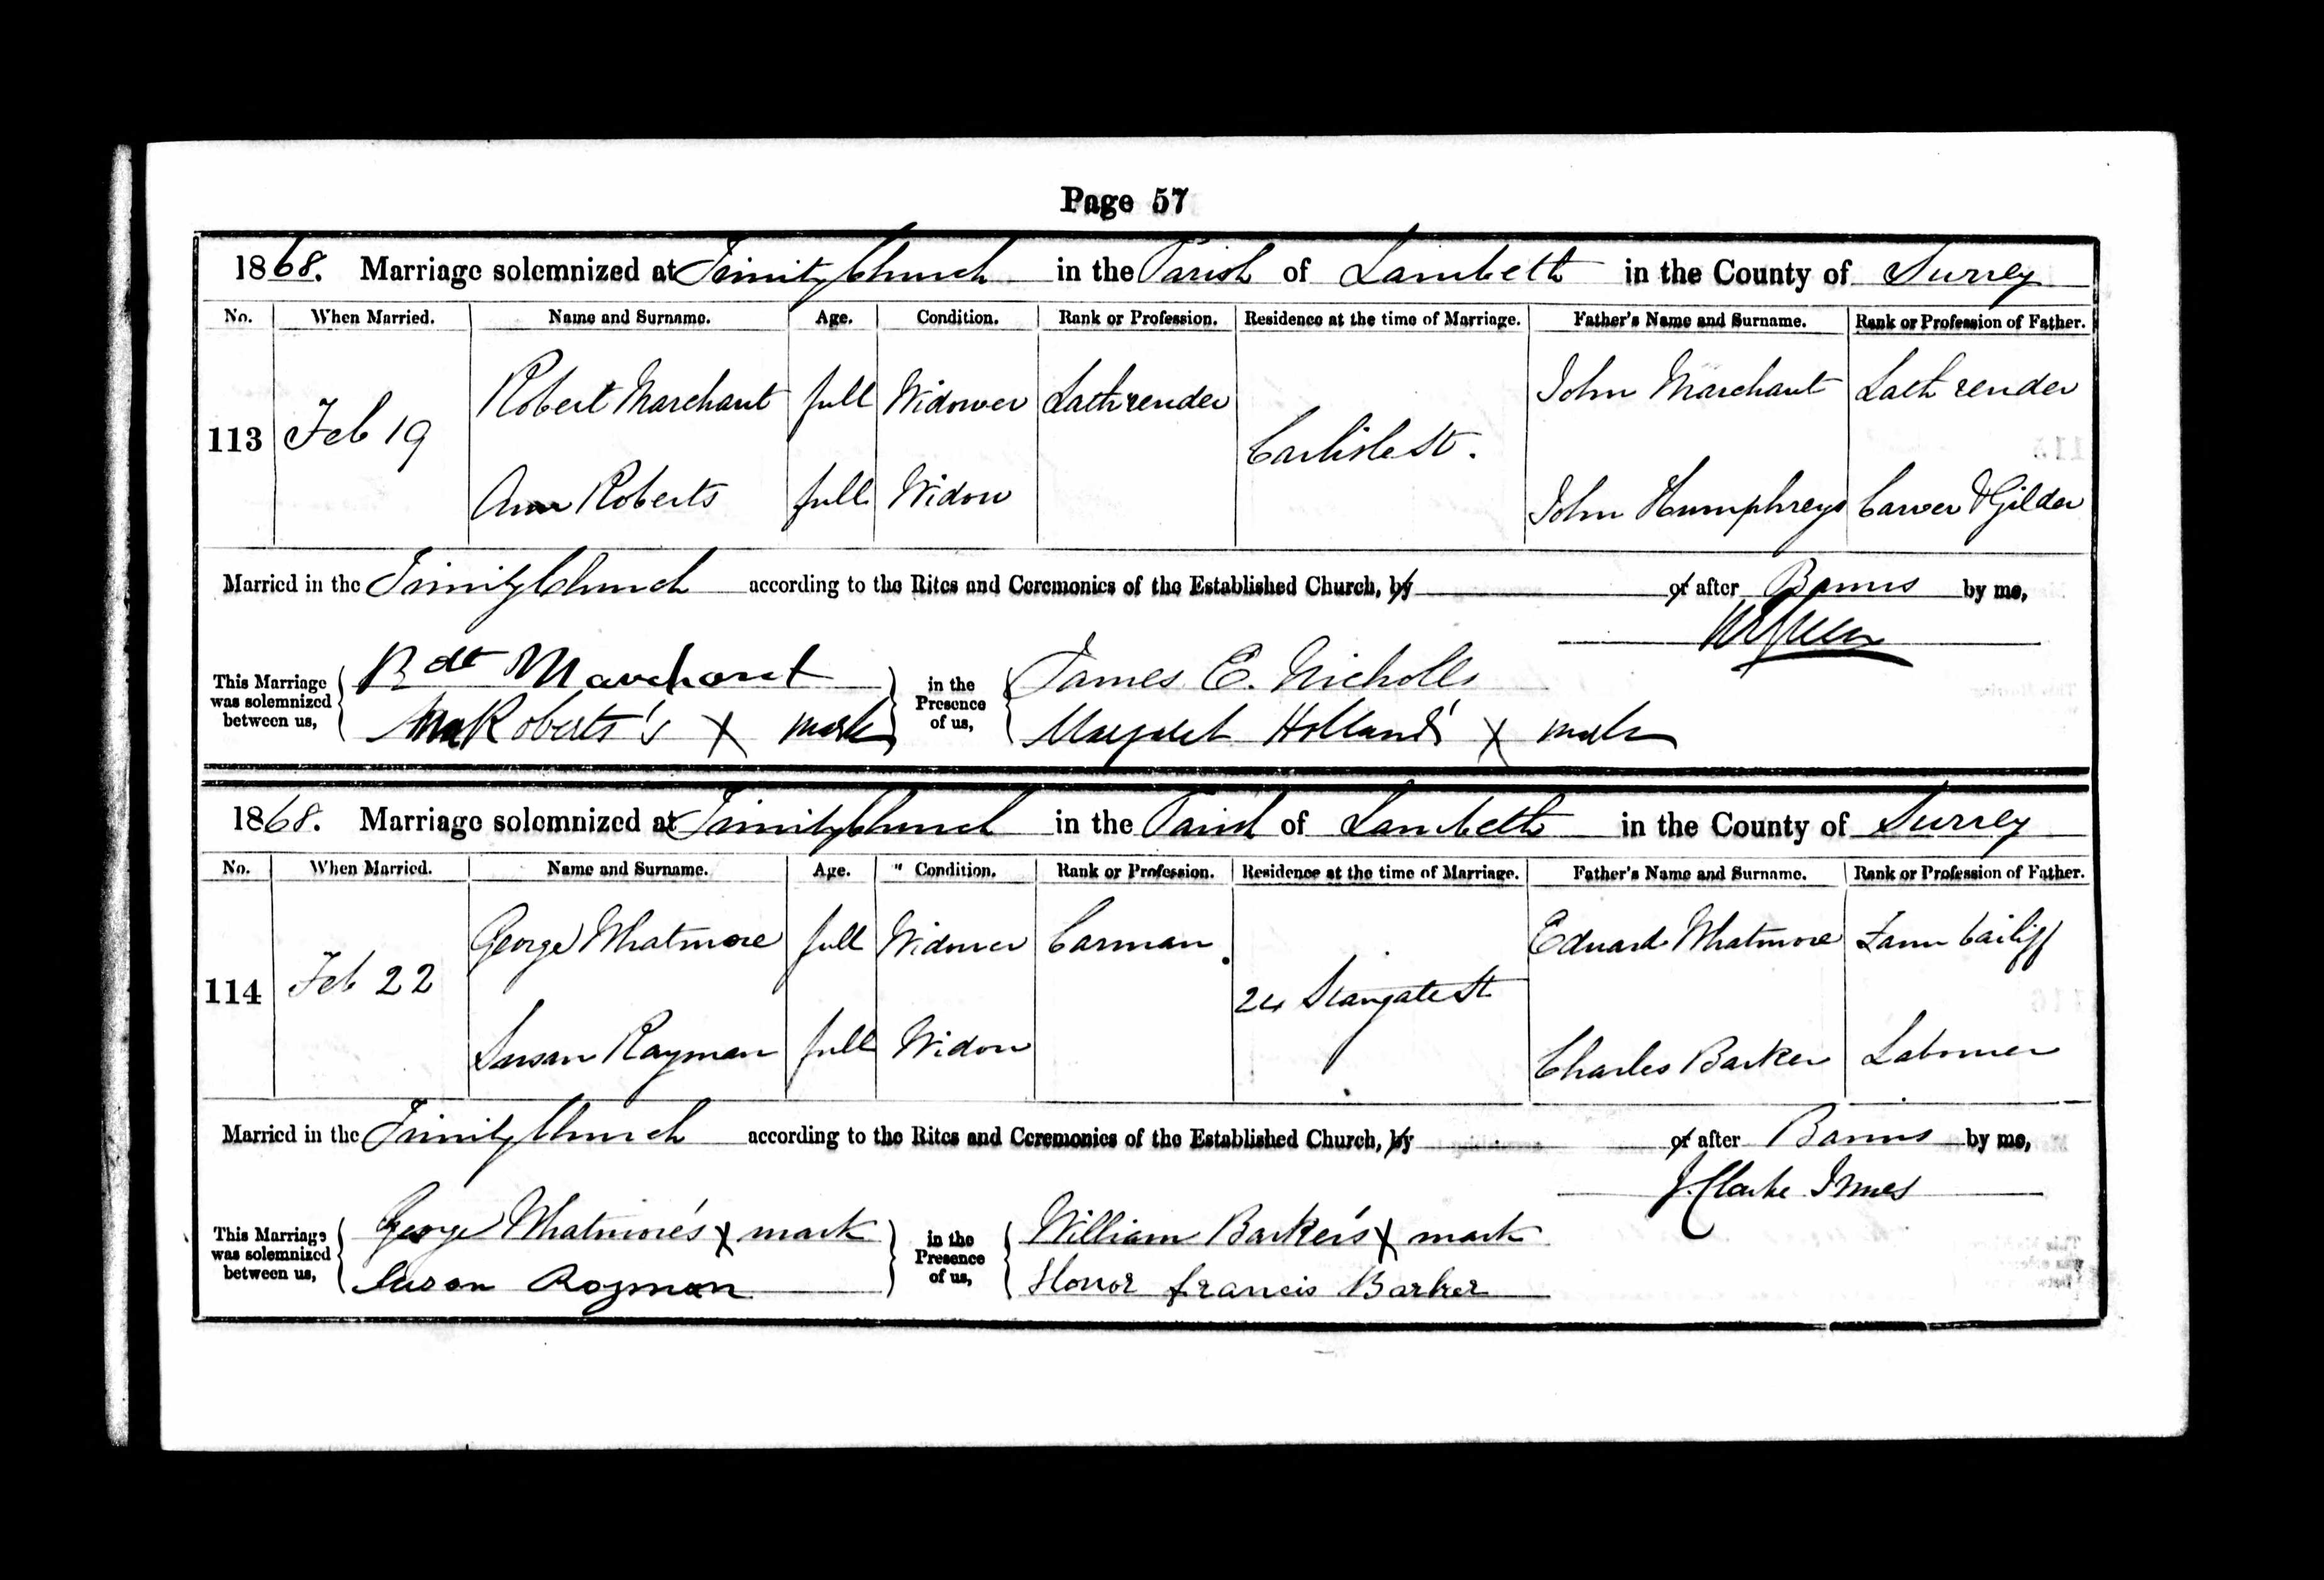 Page 57
1868. Marriage solemnized at Trinity Church in the Parish of Lambeth in the County of Surrey
No. When Married. Name and Surname. Age. Condition. Rank or Profession. Residence at the time of Marriage. Father's Name and Surname. Rank or Profession of Father.
Robert Marchant full Widower Lathrender John Marchant Lath render
113 Feb 19 Carlisle St.
Ann Roberts full Widow John Humphreys Carver & Gilder
Married in the Trinity Church according to the Rites and Ceremonies of the Established Church, by or after Banns by me,
This Marriage was solemnized between us,
Rdt Marchant
Ann Roberts's X mark
in the Presence of us,
James E. Nicholls
Margaret Holland's X mark
1868. Marriage solemnized at Trinity Church in the Parish of Lambeth in the County of Surrey
No. When Married. Name and Surname. Age. Condition. Rank or Profession. Residence at the time of Marriage. Father's Name and Surname. Rank or Profession of Father.
George Whatmore full Widower Carman Edward Whatmore Farm bailiff
114 Feb 22 24 Stangate St
Susan Rayman full Widow Charles Barker Labourer
Married in the Trinity Church according to the Rites and Ceremonies of the Established Church, by or after Banns by me,
J. Clarke Innes
This Marriage was solemnized between us,
George Whatmore's X mark
Susan Rayman
in the Presence of us,
William Barker's X mark
Honor francis Barker